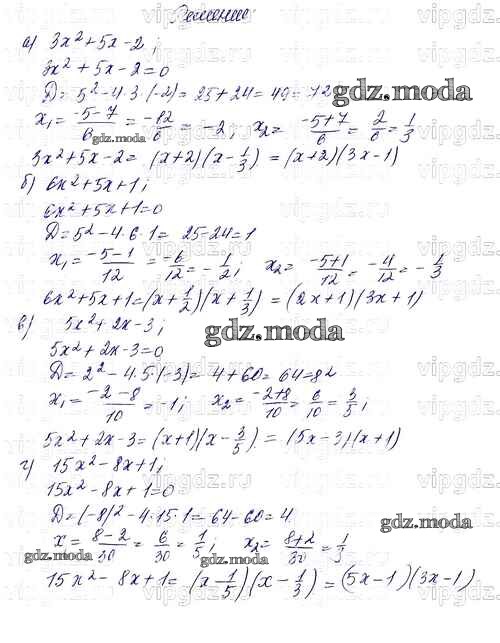 Решение:
а) 3x²+5x-2;
3x²+5x-2=0
D=5²-4·3·(-2)=25+24=49=7²
x₁=(-5-7)/6=-12/6=-2; x₂=(-5+7)/6=2/6=1/3
3x²+5x-2=(x+2)(x-1/3)=(x+2)(3x-1)
б) 6x²+5x+1;
6x²+5x+1=0
D=5²-4·6·1=25-24=1
x₁=(-5-1)/12=-6/12=-1/2; x₂=(-5+1)/12=-4/12=-1/3
6x²+5x+1=(x+1/2)(x+1/3)=(2x+1)(3x+1)
в) 5x²+2x-3;
5x²+2x-3=0
D=2²-4·5(-3)=4+60=64=8²
x₁=(-2-8)/10=-1; x₂=(-2+8)/10=6/10=3/5;
5x²+2x-3=(x+1)(x-3/5)=(5x-3)(x+1)
г) 15x²-8x+1;
15x²-8x+1=0
D=(-8)²-4·15·1=64-60=4
x=(8-2)/30=6/30=1/5; x₂=(8+2)/30=1/3
15x²-8x+1=(x-1/5)(x-1/3)=(5x-1)(3x-1)
gdz.moda
gdz.moda
gdz.moda
gdz.moda
gdz.moda
gdz.moda
vipgdz.ru